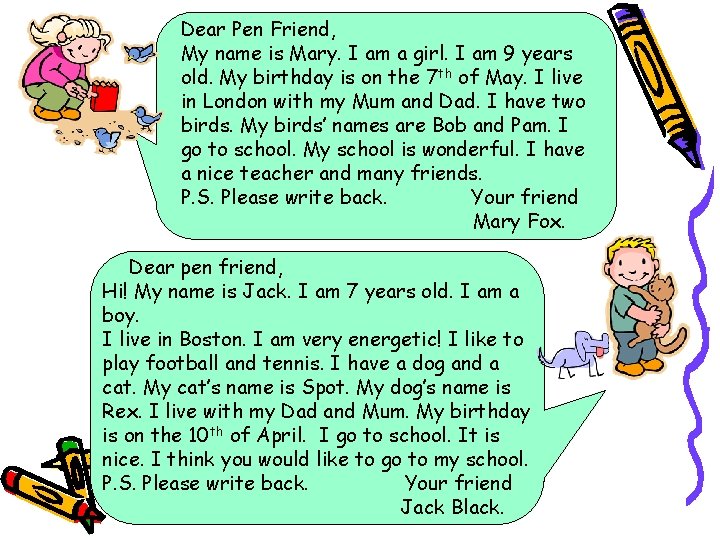 Dear Pen Friend,
My name is Mary. I am a girl. I am 9 years
old. My birthday is on the 7th of May. I live
in London with my Mum and Dad. I have two
birds. My birds’ names are Bob and Pam. I
go to school. My school is wonderful. I have
a nice teacher and many friends.
P.S. Please write back. Your friend
Mary Fox.
Dear pen friend,
Hi! My name is Jack. I am 7 years old. I am a
boy.
I live in Boston. I am very energetic! I like to
play football and tennis. I have a dog and a
cat. My cat’s name is Spot. My dog’s name is
Rex. I live with my Dad and Mum. My birthday
is on the 10th of April. I go to school. It is
nice. I think you would like to go to my school.
P.S. Please write back. Your friend
Jack Black.